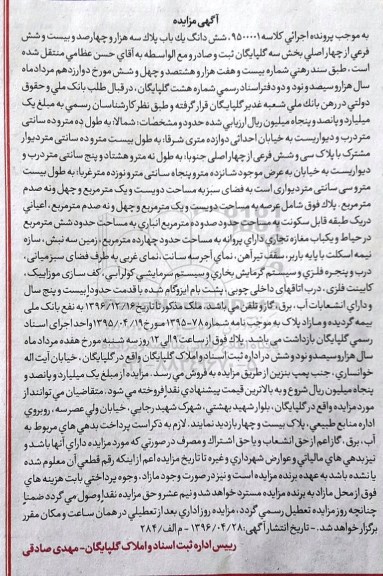 آگهی مزایده
به موجب پرونده اجرائی کلاسه ۹۵۰۰۰۰۱، شش دانگ یک باب پلاک سه هزار و چهارصد و بیست و شش
فرعی از چهار اصلی بخش سه گلپایگان ثبت و صادر و مع الواسطه به آقای حسن عظامی منتقل شده
است، طبق سند رهنی شماره بیست و هفت هزار و هشتصد و چهل و شش مورخ دوازدهم مرداد ماه
سال هزار و سیصد و نود و دو دفتر اسناد رسمی شماره هشت گلپایگان، در قبال طلب بانک ملی و حقوق
دولتی در رهن بانک ملی شعبه غدیر گلپایگان قرار گرفته و طبق نظر کارشناسان رسمی به مبلغ یک
میلیارد و پانصد و پنجاه میلیون ریال ارزیابی شده حدود و مشخصات: شمالا: به طول ده متر و ده سانتی
متر درب و دیواریست به خیابان احداثی دوازده متری شرقا: به طول بیست متر و ده سانتی متر دیوار
مشترک با پلاک سی و شش فرعی از چهار اصلی جنوبا: به طول نه متر و هشتاد و پنج سانتی متر درب و
دیواریست به خیابان به عرض موجود شانزده متر و پنجاه سانتی متر و نوزده متر غربا: به طول بیست
متر و سی سانتی متر دیواری است به فضای سبز به مساحت دویست و یک متر مربع و چهل و نه صدم
متر مربع. پلاک فوق شامل عرصه به مساحت دویست و یک متر مربع و چهل و نه صدم متر مربع، اعیانی
در یک طبقه قابل سکونت به مساحت حدود صد و ده متر مربع انباری به مساحت حدود شش متر مربع
در حیاط و یکباب مغازه تجاری دارای پروانه به مساحت حدود چهارده متر مربع، زمین سه نبش، سازه
نیمه اسکلت با پایه باربر، سقف تیرآهن، نمای آجر سه سانت، نمای غربی به طرف فضای سبز میانی،
درب و پنجره فلزی و سیستم گرمایش بخاری و سیستم سرمایشی کولر آبی، کف سازی موزاییک،
کابینت فلزی، درب اتاق های داخلی چوبی، پشت بام ایزوگام شده با قدمت حدوداً بیست و پنج سال
و دارای انشعابات آب، برق، گاز و تلفن می باشد. ملک مذکور تا تاریخ ۱۳۹۶/۱۲/۱۶ به نفع بانک ملی
بیمه گردیده و مازاد پلاک به موجب نامه شماره ۱۳۹۵۰۷۸ مورخ ۱۳۹۵/۰۴/۱۹ واحد اجرای اسناد
رسمی گلپایگان بازداشت می باشد. پلاک فوق از ساعت ۹ الی ۱۲ روز سه شنبه مورخ هفده مرداد ماه
سال هزار و سیصد و نود و شش در اداره ثبت اسناد و املاک گلپایگان واقع در گلپایگان، خیابان آیت اله
خوانساری، جنب پمپ بنزین از طریق مزایده به فروش می رسد. مزایده از مبلغ یک میلیارد و پانصد و
پنجاه میلیون ریال شروع و به بالاترین قیمت پیشنهادی نقداً فروخته می شود. متقاضیان می توانند از
مورد مزایده واقع در گلپایگان، بلوار شهید بهشتی، شهرک شهید رجایی، خیابان ولی عصر سه، روبروی
اداره منابع طبیعی، پلاک بیست و چهار بازدید نمایند. لازم به ذکر است پرداخت بدهی های مربوط به
آب، برق، گاز اعم از حق انشعاب و یا حق اشتراک و مصرف در صورتی که مورد مزایده دارای آنها باشد و
نیز بدهی های مالیاتی و عوارض شهرداری و غیره تا تاریخ مزایده اعم از اینکه رقم قطعی آن معلوم شده
یا نشده باشد به عهده برنده مزایده است و نیز در صورت وجود مازاد، وجوه پرداختی بابت هزینه های
فوق از محل مازاد به برنده مزایده مسترد خواهد شد و نیم عشر و حق مزایده نقداً وصول می گردد ضمناً
چنانچه روز مزایده تعطیل رسمی گردد، مزایده روز اداری بعد از تعطیلی در همان ساعت و مکان مقرر
برگزار خواهد شد. - تاریخ انتشار آگهی: ۱۳۹۶/۰۴/۲۸ - م الف/۲۸۴
رییس اداره ثبت اسناد و املاک گلپایگان - مهدی صادقی